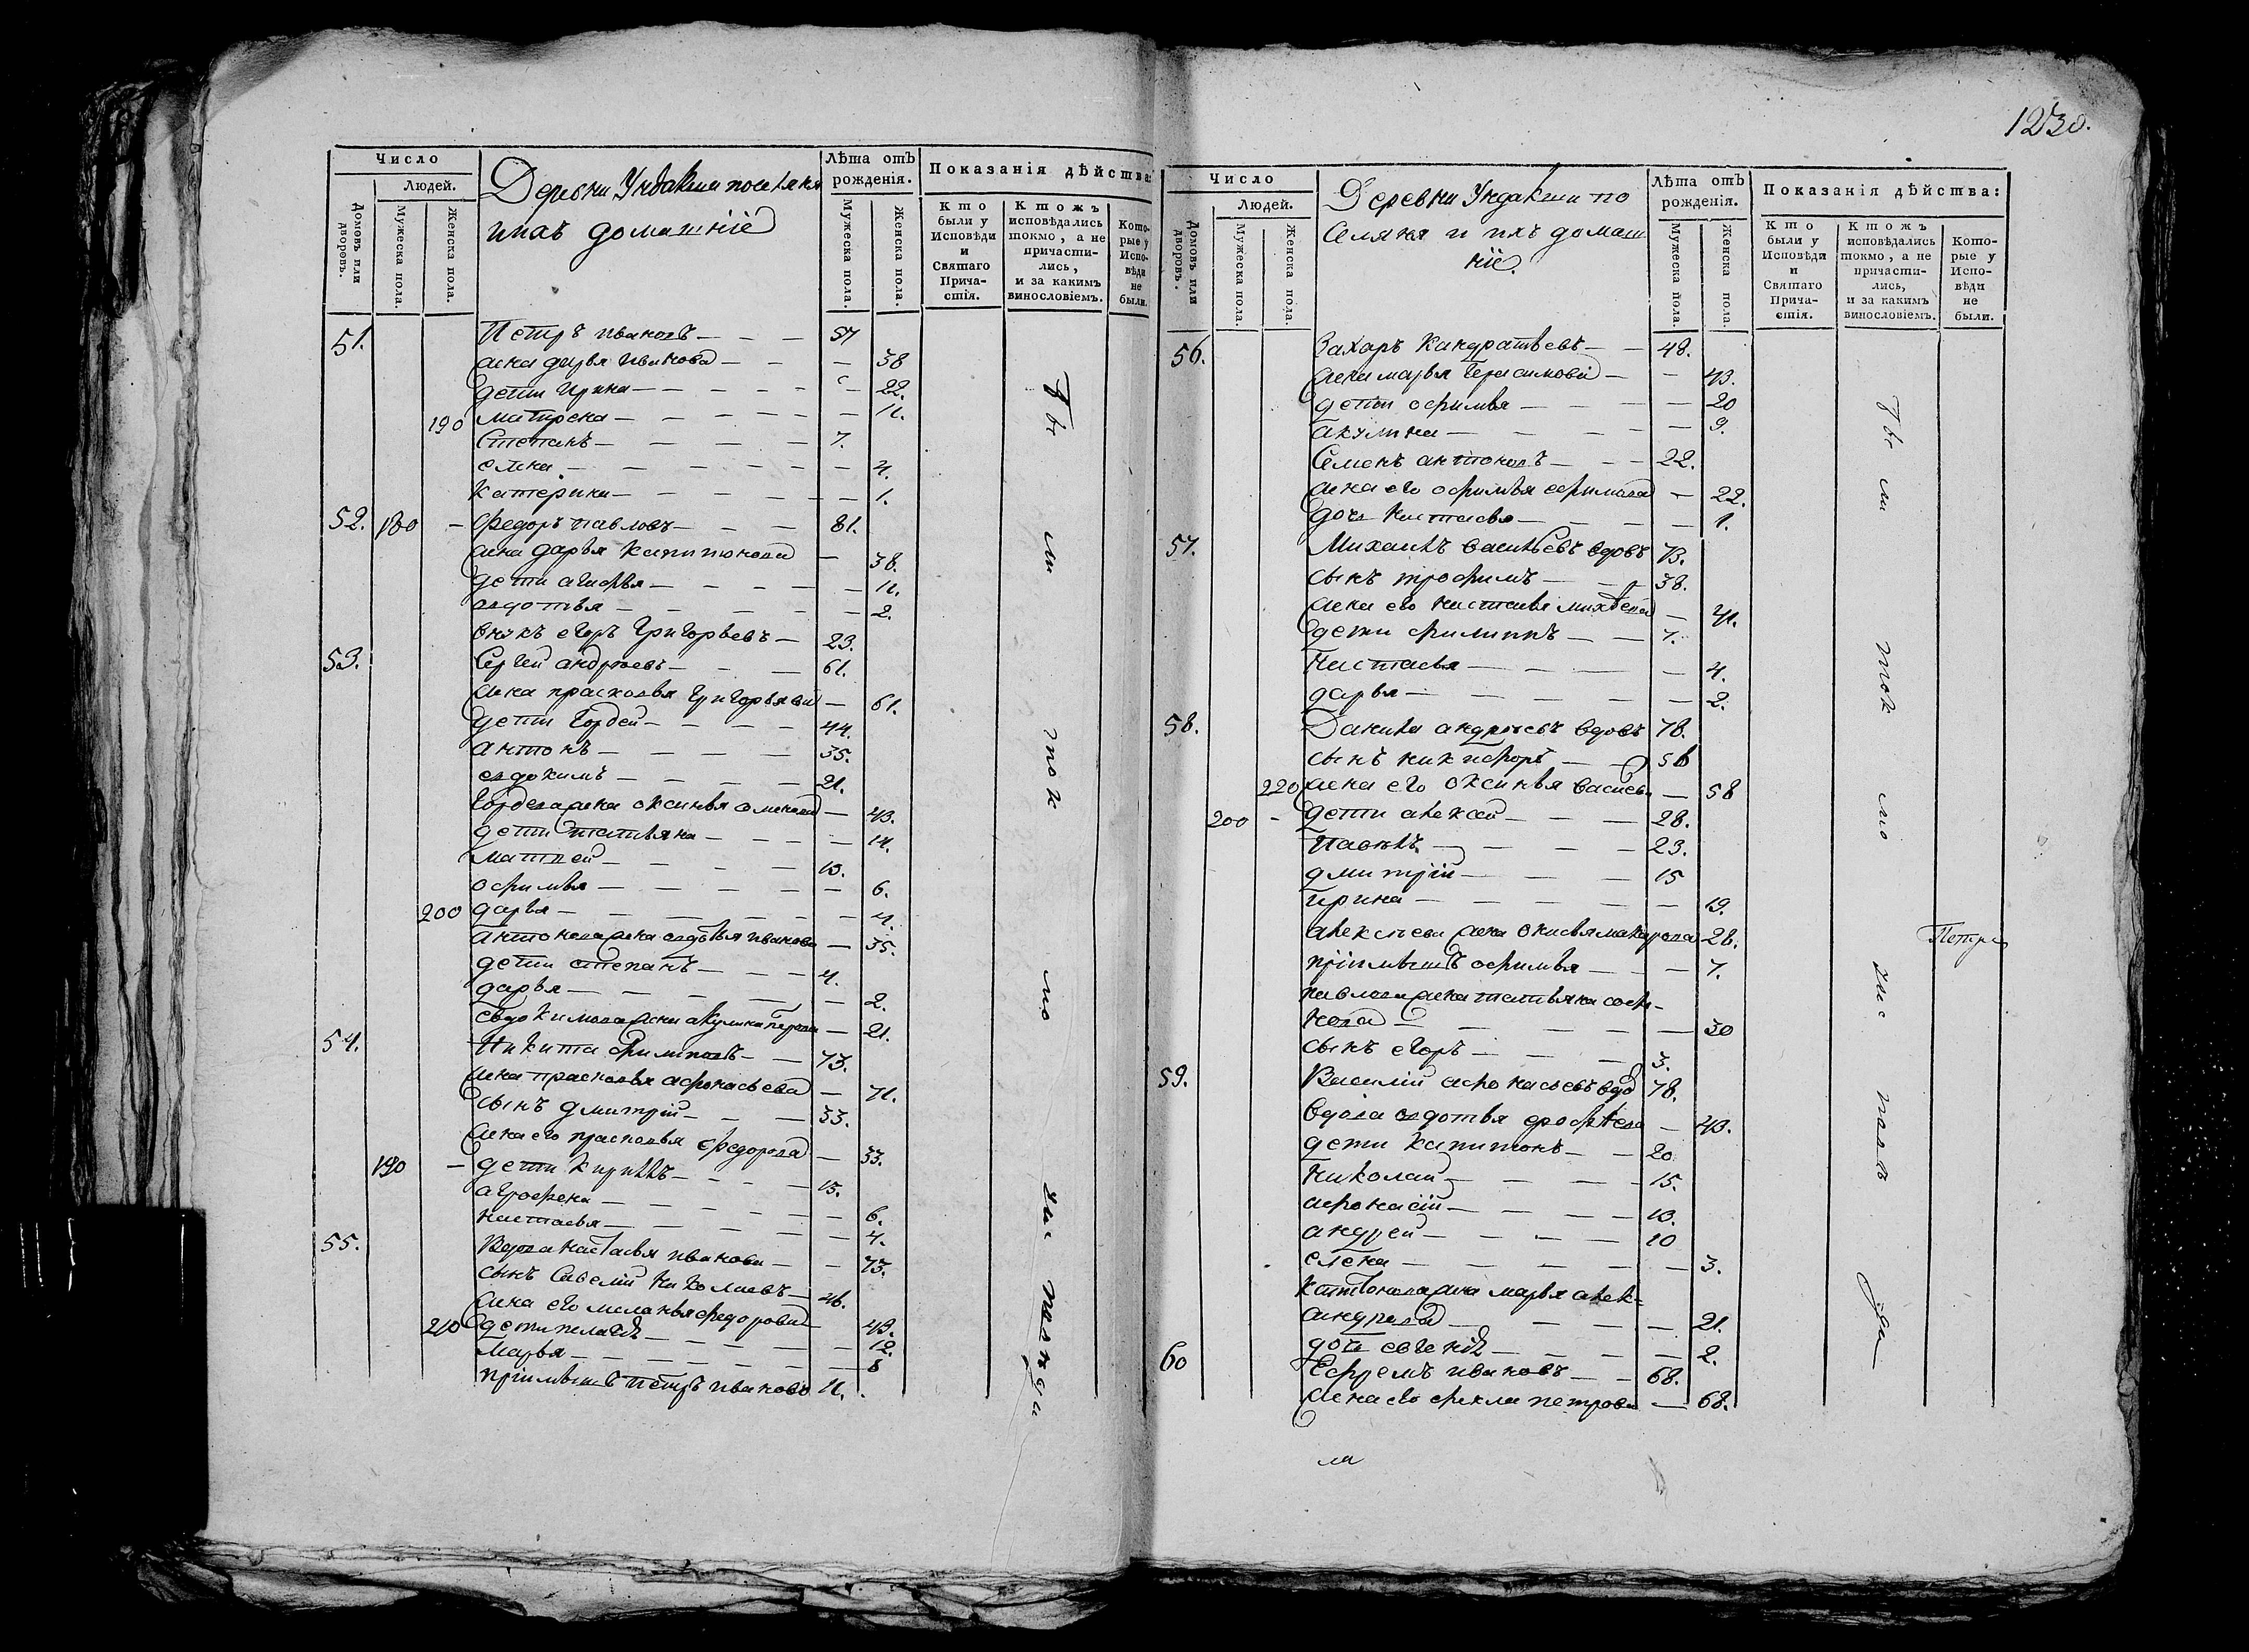 Число
Людей.
Домовъ или дворовъ.
Мужеска пола.
Женска пола.
Деревни Ундакши поселяня
иихъ домашніе
Лѣта отъ рожденія.
Мужеска пола.
Женска пола.
Показанія дѣйства:
Кто были у Исповѣди и Святаго Прича-стія.
Ктожъ исповѣдались токмо, а не причасти-лись, и за какимъ винословіемъ.
Кото-рые у Испо-вѣди не были.
51. Петръ ивановъ — 57
жена дарья иванова — 38
дети ирина — 22.
190 матрена — 11.
Степанъ — 7.
елена — 4.
катерина — 1.
52. 180 — федоръ павловъ — 81.
жена дарья капитонова — 38.
дети агафья — 11.
авдотья — 2.
внукъ егоръ григорьевъ — 23.
53. Сергей андреевъ — 61.
жена прасковья григорьева — 61.
дети гордей — 44.
антонъ — 35.
евдокимъ — 21.
гордеева жена оксинья семенова — 43.
дети татьяна — 14.
матвей — 13.
офимья — 6.
200 дарья — 4.
антонова жена авдотья иванова — 35.
дети степанъ — 4.
дарья — 2.
евдокимова жена акулина — 21.
54. Никита филиповъ — 73.
жена прасковья афонасьева — 71.
сынъ дмитрій — 33.
жена его прасковья федорова — 33.
190 — дети кирилъ — 13.
агрофена — 6.
настасья — 4.
55. Вдова настасья иванова — 73.
сынъ савелій николаевъ — 46.
жена его меланья федорова — 43.
210 дети пелагѣя — 12.
марья — 8
пріимышъ петръ ивановъ 11.
Тѣ ш ток мо
1230.
Число
Людей.
Домовъ или дворовъ.
Мужеска пола.
Женска пола.
Деревни Ундакши по
селяня и ихъ домаш
ніе.
Лѣта отъ рожденія.
Мужеска пола.
Женска пола.
Показанія дѣйства:
Кто были у Исповѣди и Святаго Прича-стія.
Ктожъ исповѣдались токмо, а не причасти-лись, и за какимъ винословіемъ.
Кото-рые у Испо-вѣди не были.
56. Захаръ кандратьевъ — 48.
жена марья герасимова — 43.
дети офимья — 20
акулина — 9.
Семенъ антоновъ — 22.
жена его офимья ефимова — 22.
дочь настасья — 1.
57. Михаилъ васильевъ вдовъ 73.
сынъ трофимъ — 38.
жена его настасья — 41.
дети филиппъ — 7.
Настасья — 4.
дарья — 2.
58. Данила андреевъ вдовъ 78.
сынъ никифоръ — 56
220 жена его оксинья васильева — 58
200 — дети алексей — 28.
павелъ — 23.
дмитрій — 15
ирина — 19.
алексеева жена макарова 28.
пріимышъ офимья — 7.
павлова жена татьяна софо-
нова — 30
сынъ егоръ — 3.
59. Василій афонасьевъ вдо 78.
вдова авдотья — 43.
дети капитонъ — 20
николай — 15.
афонасій — 13.
андрей — 10
елена — 3.
капитонова жена марья алек-
андрова — 21.
дочь евгенія — 2.
60 Ефремъ ивановъ — 68.
жена его фекла петрова — 68.
Тѣ ш ток мо
Петра